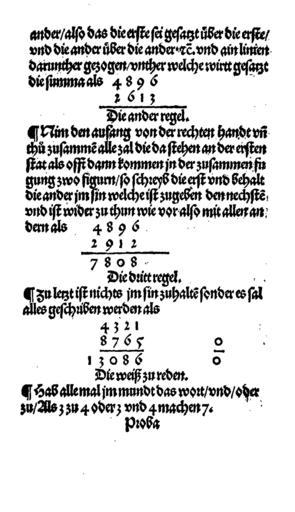 ander/also das die erste sei gesatzt über die erste/
vnd die ander über die ander ⁊c. vnd ain linien
darunther gezogen/vnther welche wirtt gesatzt
die summa als 4 8 9 6
2 6 1 3
Die ander regel.
¶ Nim den anfang von der rechten handt vñ
thů zusammẽ alle zal die da stehen an der ersten
stat als offt dann kommen in der zusammen fu
gung zwo figurn/so schreyb die erst vnd behalt
die ander jm sin welche ist zugeben den nechstẽ/
vnd ist wider zu thun wie vor also mit allen an
dern als 4 8 9 6
2 9 1 2
7 8 0 8
Die dritt regel.
¶ Zu letzt ist nichts jm sin zuhaltẽ sonder es sal
alles geschriben werden als
4 3 2 1
8 7 6 5 0
1 3 0 8 6 0
Die weiß zu reden.
¶ Hab alle mal jm mundt das wort/vnd/oder
zu/Als 3 zu 4 oder 3 vnd 4 machen 7.
Proba